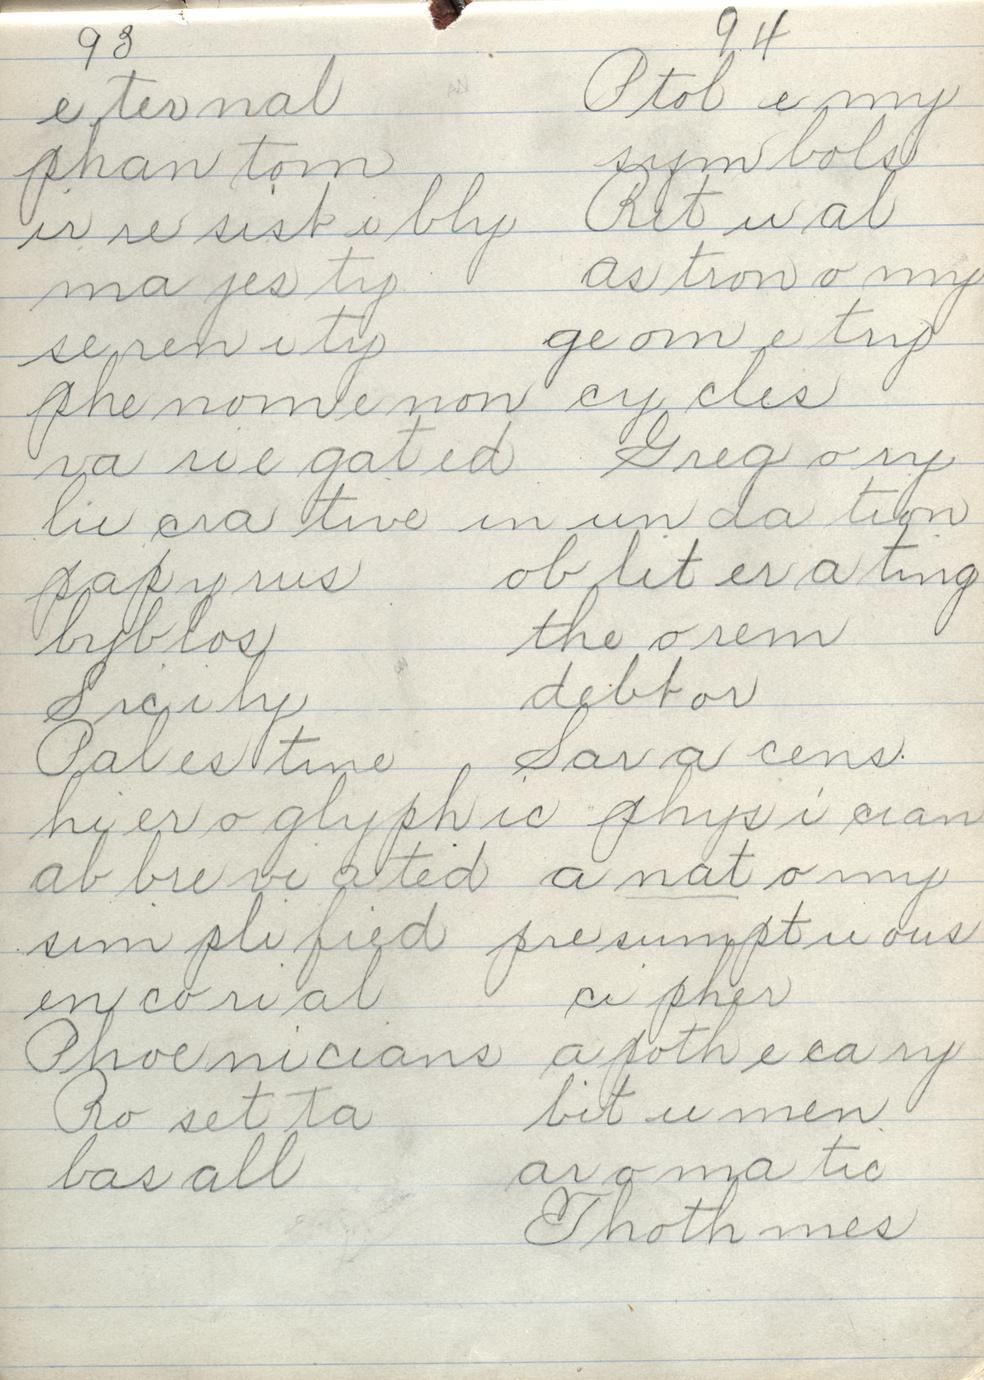 93
e ternal
phan tom
ir re sist i bly
ma jes ty
se ren i ty
phe nom e non
va ri e gat ed
lu cra tive
papy rus
byb los
Sici ly
Pal es tine
hi er o glyph ic
ab bre vi a ted
sim pli fied
en co ri al
Phoe ni cians
Ro set ta
bas all
94
Ptol e my
sym bols
Rit u al
as tron o my
ge om e try
cy cles
Greg o ry
in un da tion
ob lit er a ting
the o rem
debt or
Sar a cens.
phys i cian
a nat o my
pre sump tu ous
ci pher
a poth e ca ry
bit u men
ar o ma tic
Thoth mes